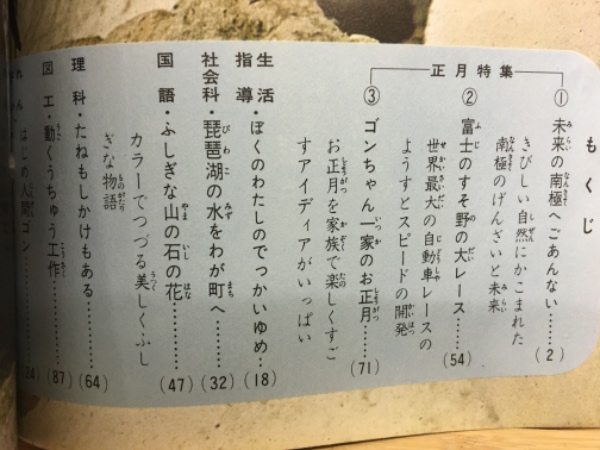 もくじ
正月特集
①未来の南極へごあんない……(2)
きびしい自然にかこまれた
南極のげんざいと未来
②富士のすそ野の大レース……(54)
世界最大の自動車レースの
ようすとスピードの開発
③ゴンちゃん一家のお正月……(71)
お正月を家族で楽しくすご
すアイディアがいっぱい
生活指導・ぼくのわたしのでっかいゆめ…(18)
社会科・琵琶湖の水をわが町へ……(32)
国語・ふしぎな山の石の花……(47)
カラーでつづる美しくふし
ぎな物語
理科・たねもしかけもある……(64)
図工・動くうちゅう工作……(87)
はじめ人間ゴン……